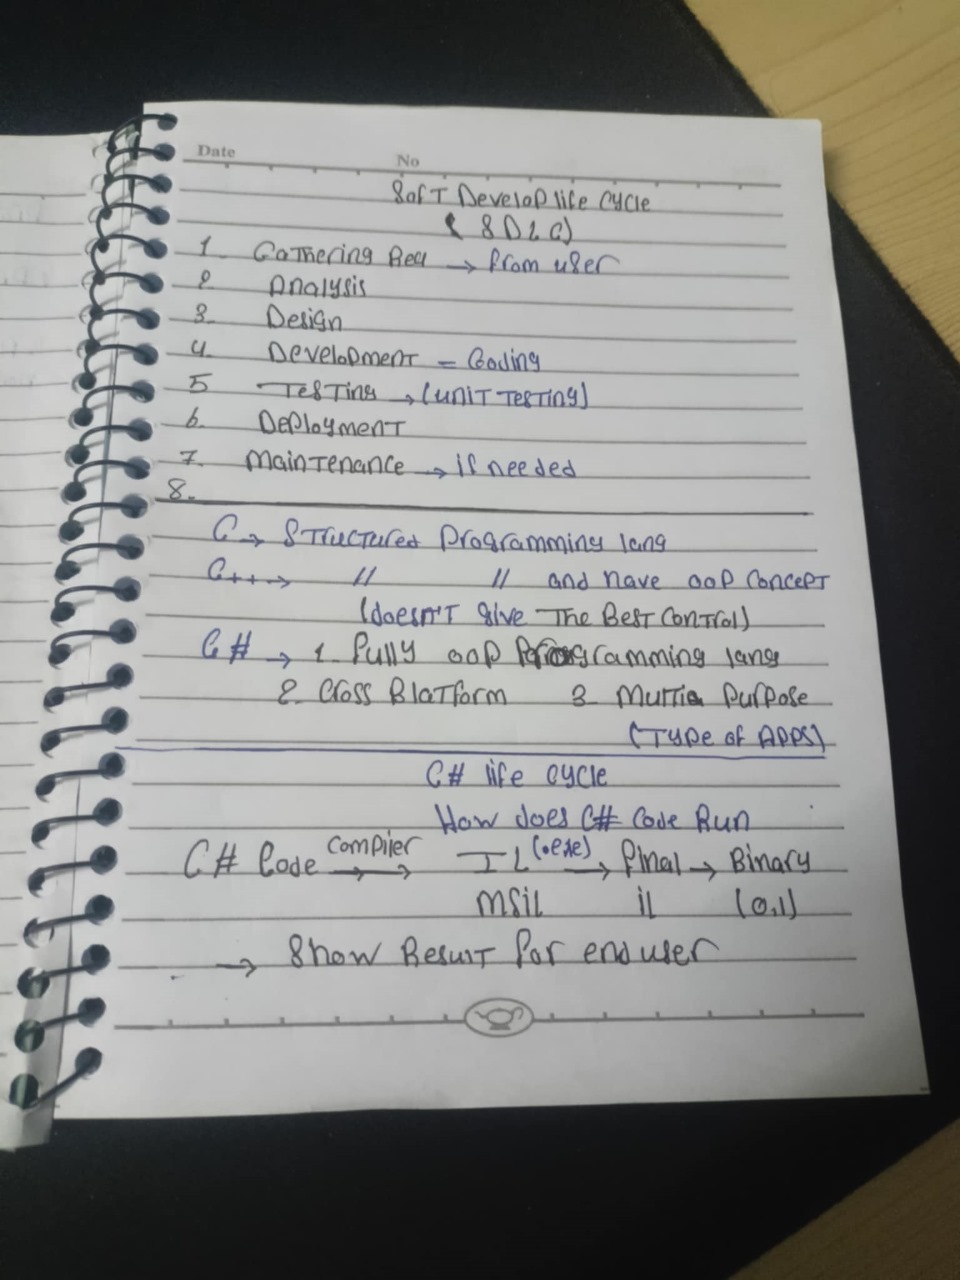 Date No
Soft Develop life cycle
(SDLC)
1. Gathering Req → from user
2. Analysis
3. Design
4. Development = Coding
5 Testing → (unit testing)
6. Deployment
7. Maintenance → if needed
8.
C → Structured Programming lang
C++ → // // and have oop concept
(doesn't give The Best Control)
C# → 1. Fully oop Programming lang
2. Cross Platform 3. Multi Purpose
(Type of APPS)
C# life cycle
How does C# Code Run
C# Code compiler →→ IL (.exe) → final → Binary
MSIL il (0,1)
→ Show Result for end user